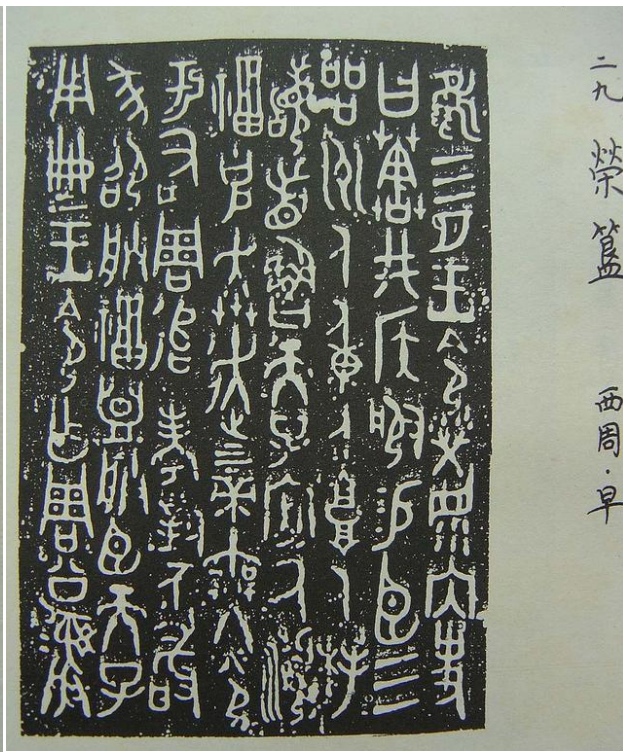 二九 榮簋 西周·早
隹三月王令榮眔內史
曰井侯服易臣三
品州人人人拜
首魯天子厥瀕
福克奔走上下帝無冬令
于右周追考對不敢
卲朕福盟朕臣天子
用典王令乍周公彝